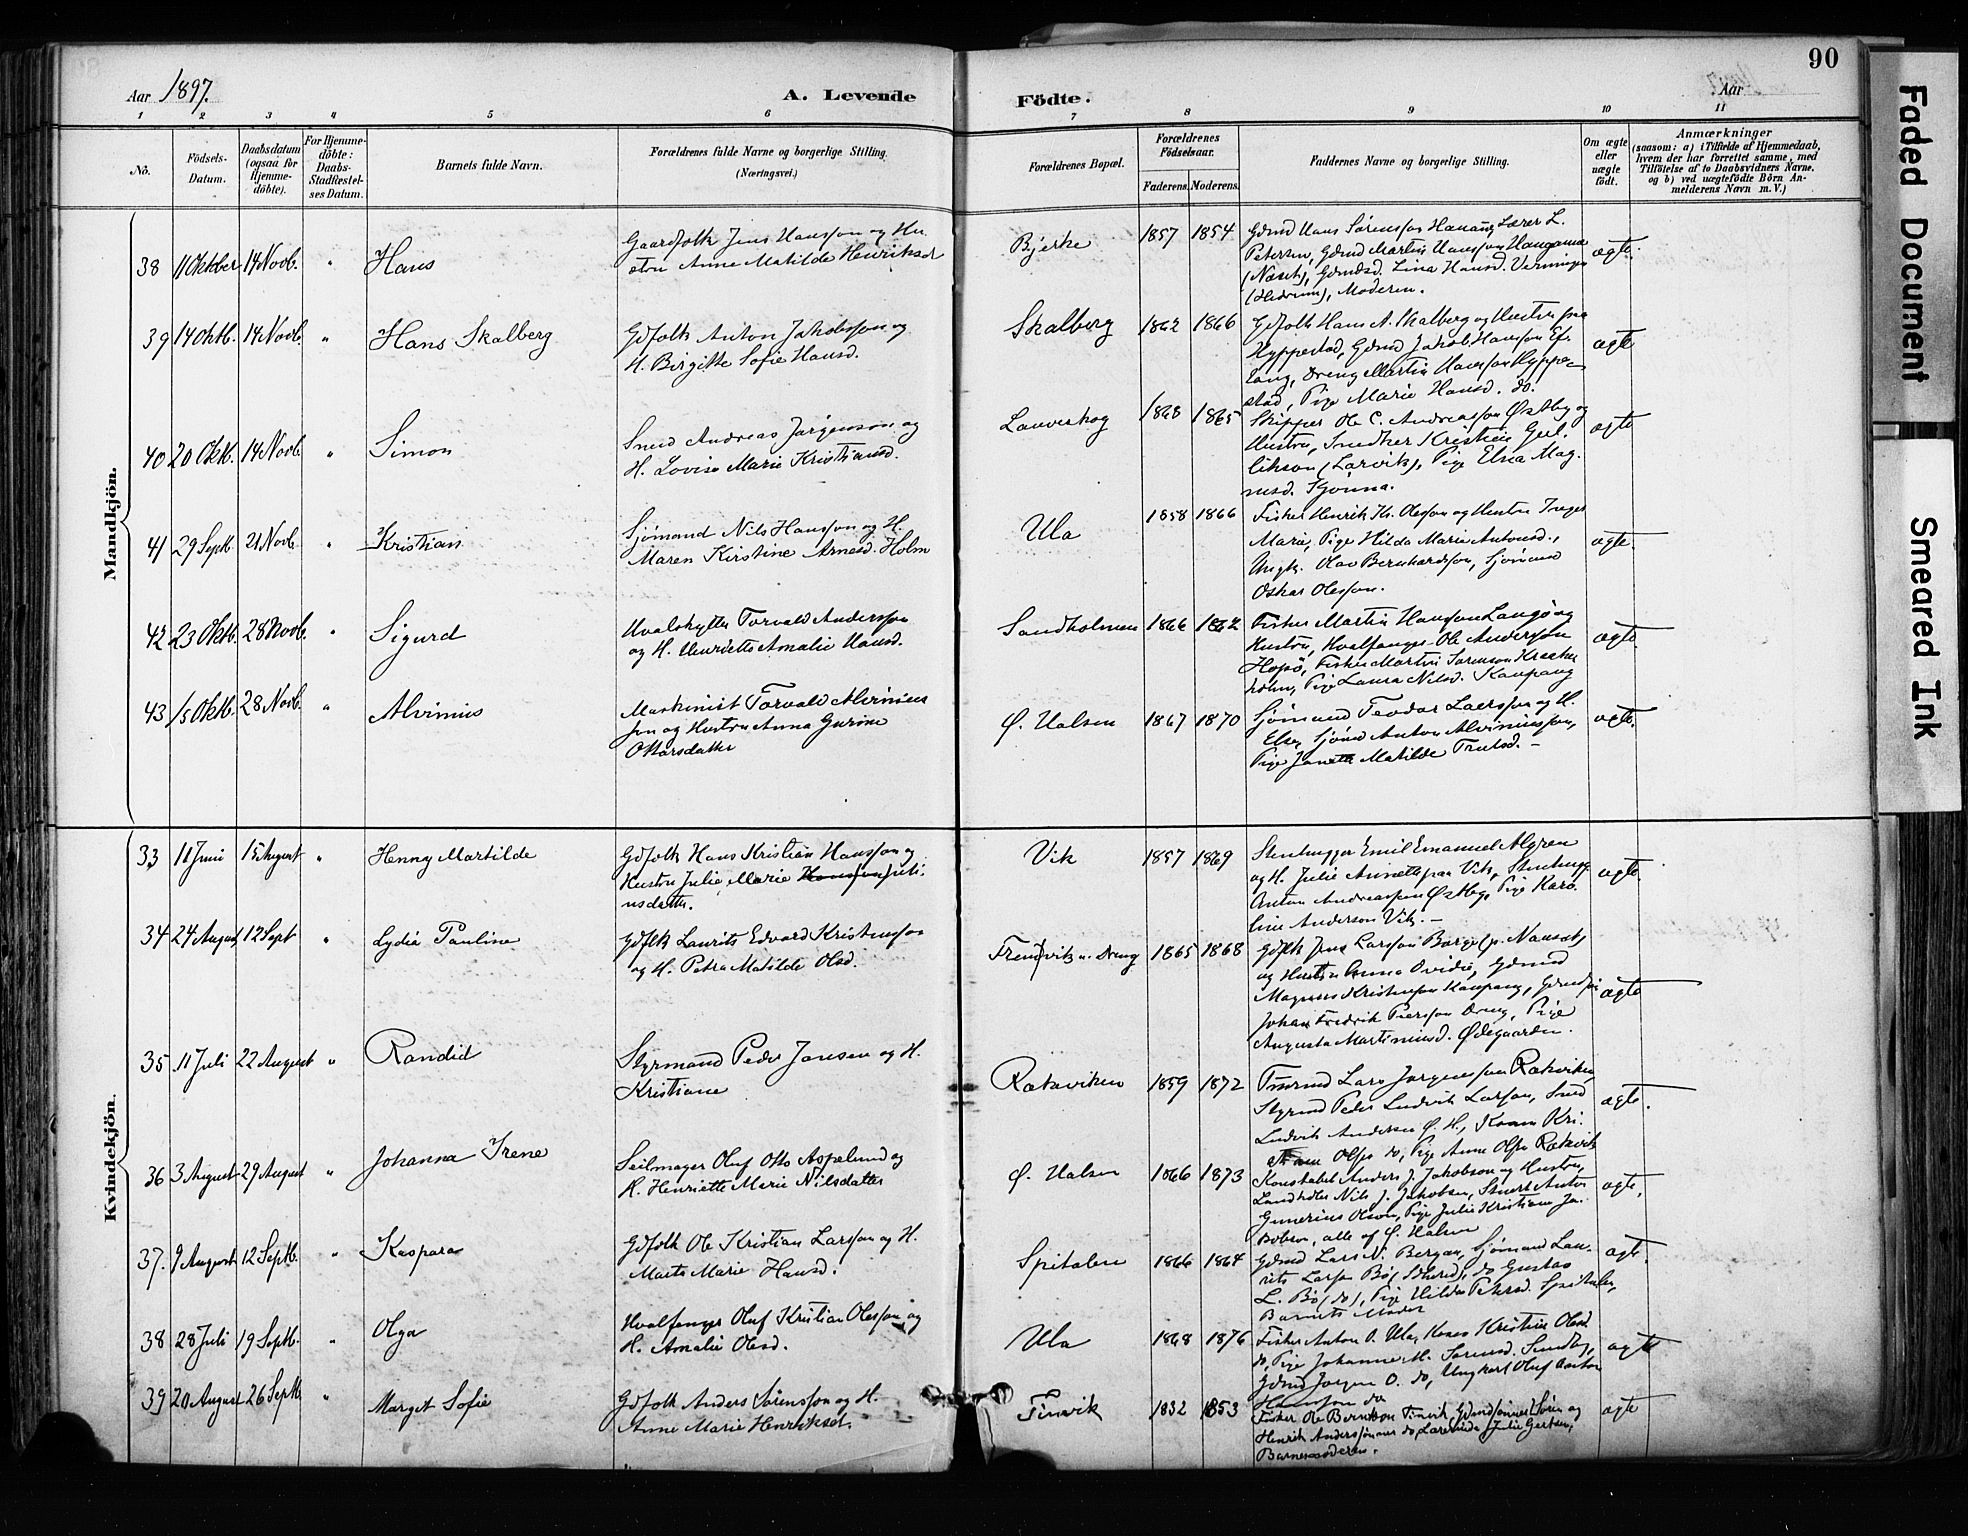 90
Aar 1897.
A. Levende
Födte.
Aar
1 2 3 4 5 6 7 8 9 10 11
No.
Födsels-
Datum.
Daabsdatum
(ogsaa for
Hjemme-
döbte).
For Hjemme-
döbte:
Daabs-
Stadfæstel-
ses Datum.
Barnets fulde Navn.
Forældrenes fulde Navne og borgerlige Stilling.
(Næringsvei.)
Forældrenes Bopæl.
Forældrenes
Födselsaar.
Faderens. Moderens.
Faddernes Navne og borgerlige Stilling.
Om ægte
eller
uægte
födt.
Anmærkninger
(saasom: a) i Tilfælde af Hjemmedaab,
hvem der har forrettet samme, med
Tilföielse af to Daabsvidners Navne,
og b) ved uægtefödte Börn An-
melderens Navn m. V.)
Mandkjön.
38 11 Oktober 14 Novb. " Hans
Gaardfolk Jens Hansson og Hu
stru Anne Matilde Henriksd
Bjerke 1857 1854
Gdmd Hans Sørensson Lærer L.
Petersen, Gdmd Martin Hansson
Gdmdsd. Lina Hansd.
(Hedrum), Moderen.
ægte.
39 14 Oktb. 14 Novb. " Hans Skalberg
Gdfolk Anton Jakobsson og
H. Birgitte Sofie Hansd.
Skalberg 1862 1866
Gdfolk Hans A. Skalberg og Hustru paa
Hyppestad, Gdmd Jakob Hansson
Dreng Martin Hansson Hyppe-
stad, Pige Marie Hansd. do.
ægte
40 20 Oktb. 14 Novb. " Simon
Smed Andreas Jørgensson og
H. Lovise Marie Kristiansd.
Lauveskog 1868 1865
Skipper Ole C. Andreasson Østby og
Hustru, Snedker Kristian
(Larvik), Pige Elna Mag-
nusd.
ægte
41 29 Septb. 21 Novb. " Kristian
Sjømand Nils Hansson og H.
Maren Kirstine Arnesd. Holm
Ula 1858 1866
Fisker Henrik Kr. Olesson og Hustru Inger
Marie, Pige Hilda Marie Antonsd.,
Ungk. Olav Bernhardsson, Sjømand
Oskar Olesson.
ægte.
42 23 Oktb. 28 Novb. " Sigurd
Hvalskytter Torvald Andersson
og H. Henriette Amalie Hansd.
Sandholmen 1866 1862
Fisker Martin Hansson Langø og
Hustru, Hvalfanger Ole Andersson
Hopø, Fisker Martin Sørensson
Pige Laura Nilsd. Kaupang
ægte.
43 15 Oktb. 28 Novb. " Alvinius
Maskinist Torvald Alvinius
son og Hustru Anna Gurine
Ottarsdatter
Ø. Halsen 1867 1870
Sjømand Teodor Larsson og H.
Else, Sjømd Anton Alviniusson,
Pige Matilde Trulsd. –
ægte.
Kvindekjön.
33 11 Juni 15 August " Henny Martilde
Gdfolk Hans Kristian Hansson og
Hustru Julie Marie Juli-
usdatter.
Vik 1857 1869
Stenhugger Emil Emanuel Algren
og H. Julie Annette paa Vik, Stenhugg
Anton Andreassen Østby, Pige Karo-
line Anderson Vik. –
ægte.
34 24 August 12 Sept " Lydia Pauline
Gdflk Laurits Edvard Kristensson
og H. Petra Matilde Olsd.
Fremdvik u. Dreng 1865 1868
Gdflk Jens Larsson
og Hustru Anna Ovidie, Gdmd
Magnus Kristensson Kaupang,
Johan Fredrik Dreng, Pige
Augusta Martiniusd. Ødegaarden.
ægte
35 11 Juli 22 August " Randid
Styrmand Peder Jansen og H.
Kristiane
Rækaviken 1859 1872
Lars Jørgensson Rækviken,
Styrmd Peder Ludvik Larsson, Smed
Ludvik Andersen Ø. H., Konen Kri-
Olsen do, Pige Anne Olsen Rækvik
ægte.
36 3 August 29 August " Johanna Irene
Seilmager Oluf Otto Aspelund og
H. Henriette Marie Nilsdatter
Ø. Halsen 1866 1873
Konstabel Anders J. Jakobson og Hustru,
Landhdler Nils J. Jakobsen, Stuert Anton
Gunerius Olson, Pige Julie Kristiane Ja-
kobson, alle af Ø. Halsen
ægte.
37. 9 August 12 Septb. " Kaspara
Gdfolk Ole Kristian Larsson og H.
Marte Marie Hansd.
Spitalen 1866 1864
Gdmd Lars N. Bergan, Sjømand Lau-
rits Larsen Bø, do Gustav
L. Bø (do), Pige Hilda Petersd. Spitalen,
Barnets Moder
ægte.
38 28 Juli 19 Septb. " Olga
Hvalfanger Oluf Kristian Olesson og
H. Amalie Olesd.
Ula 1868 1876
Fisker Anton O. Ula, Kones Kristine Olesd
do, Pige Johanne M. Sørensd. Sundby,
Gdmd Jørgen O. do, Ungkarl Oluf Anton
Hansson do
ægte
39 20 August 26 Septb " Margit Sofie
Gdfolk Anders Sørensson og H.
Anne Marie Henriksd.
Tinvik 1832 1853
Fisker Ole Berntsson Tinvik, Gdmdsønner Søren og
Henrik Anderssønner do, Lærerinde Julie Gertsen,
Barnemoderen.
ægte
Faded Document
Smeared Ink